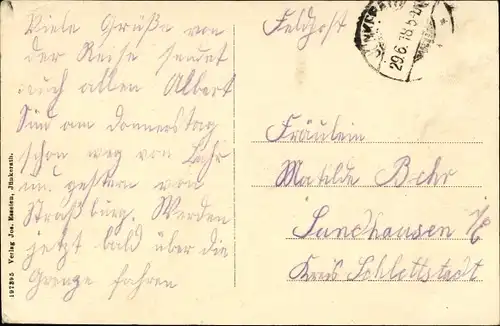 Viele Grüße von
der Reise sendet
auch allen Albert
Sind am Donnerstag
schon weg von Lahr
u. gestern von
Straßburg. Werden
jetzt bald über die
Grenze fahren
Feldpost
JÜNKERATH
29.6.18.5-6N
Fräulein
Matilde Behr
Sundhausen i/E
Kreis Schlettstadt
197395 Verlag Jos. Massen, Jünkerath.